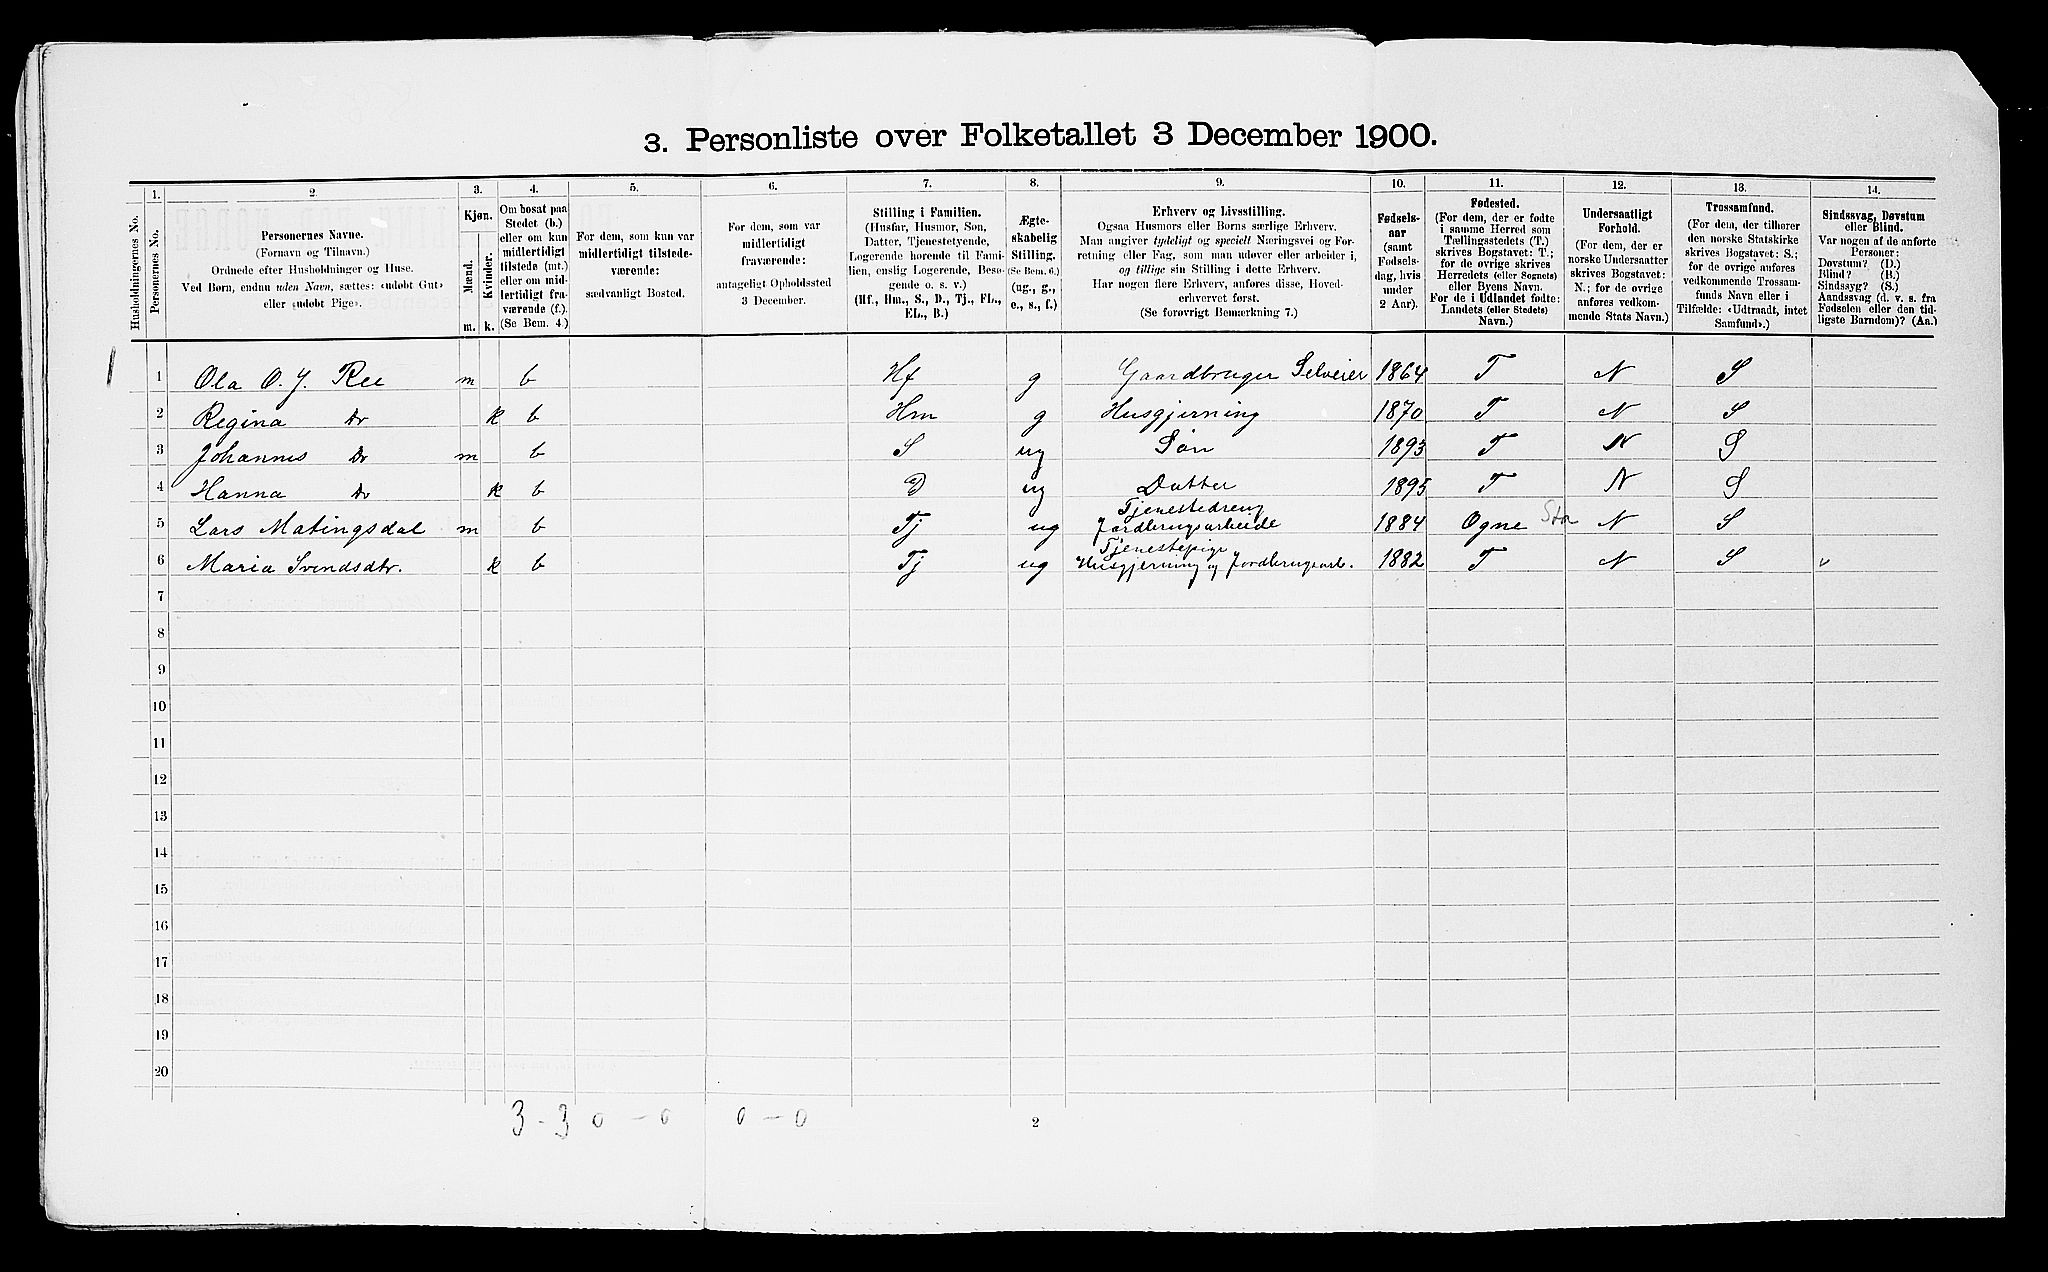 3. Personliste over Folketallet 3 December 1900.
1. 2. 3. 4. 5. 6. 7. 8. 9. 10. 11. 12. 13. 14.
Husholdningernes No.
Personernes No.
Personernes Navne.
(Fornavn og Tilnavn.)
Ordnede efter Husholdninger og Huse.
Ved Børn, endnu uden Navn, sættes: «udøbt Gut»
eller «udøbt Pige».
Kjøn.
Mænd.
Kvinder.
m. k.
Om bosat paa
Stedet (b.)
eller om kun
midlertidigt
tilstede (mt.)
eller om mid-
lertidigt fra-
værende (f.).
(Se Bem. 4.)
For dem, som kun var
midlertidigt tilstede-
værende:
sædvanligt Bosted.
For dem, som var
midlertidigt
fraværende:
antageligt Opholdssted
3 December.
Stilling i Familien.
(Husfar, Husmor, Søn,
Datter, Tjenestetyende,
Logerende hørende til Fami-
lien, enslig Logerende, Besø-
gende o. s. v.)
(Hf., Hm., S., D., Tj., FL.,
EL., B.)
Ægte-
skabelig
Stilling.
(Se Bem. 6.)
(ug., g.,
e., s., f.)
Erhverv og Livsstilling.
Ogsaa Husmors eller Børns særlige Erhverv.
Man angiver tydeligt og specielt Næringsvei og For-
retning eller Fag, som man udøver eller arbeider i,
og tillige sin Stilling i dette Erhverv.
Har nogen flere Erhverv, anføres disse, Hoved-
erhvervet først.
(Se forøvrigt Bemærkning 7.)
Fødsels-
aar
(samt
Fødsels-
dag, hvis
under
2 Aar).
Fødested.
(For dem, der er fødte
i samme Herred som
Tællingsstedets (T.)
skrives Bogstavet: T.;
for de øvrige skrives
Herredets (eller Sognets)
eller Byens Navn.
For de i Udlandet fødte:
Landets (eller Stedets)
Navn.)
Undersaatligt
Forhold.
(For dem, der er
norske Undersaatter
skrives Bogstavet:
N.; for de øvrige
anføres vedkom-
mende Stats Navn.)
Trossamfund.
(For dem, der tilhører
den norske Statskirke
skrives Bogstavet: S.;
for de øvrige anføres
vedkommende Trossam-
funds Navn eller i
Tilfælde: «Udtraadt, intet
Samfund».)
Sindssvag, Døvstum
eller Blind.
Var nogen af de anførte
Personer:
Døvstum? (D.)
Blind? (B.)
Sindssyg? (S.)
Aandssvag (d. v. s. fra
Fødselen eller den tid-
ligste Barndom)? (Aa.)
1 Ola O. J. Ree m b Hf g Gaardbruger Selveier 1864 T N S
2 Regina Do k b Hm g Husgjerning 1870 T N S
3 Johannes Do m b S ug Søn 1893 T N S
4 Hanna Do k b D ug Datter 1895 T N S
5 Lars Matingsdal m b Tj ug Tjenestedreng Jordbrugsarbeide 1884 Ogne N S
6 Maria Svendsdtr. k b Tj ug Tjenestepige Husgjerning og Jordbrugsarb. 1882 T N S
7
8
9
10
11
12
13
14
15
16
17
18
19
20
3 - 3 0 - 0 0 - 0
2